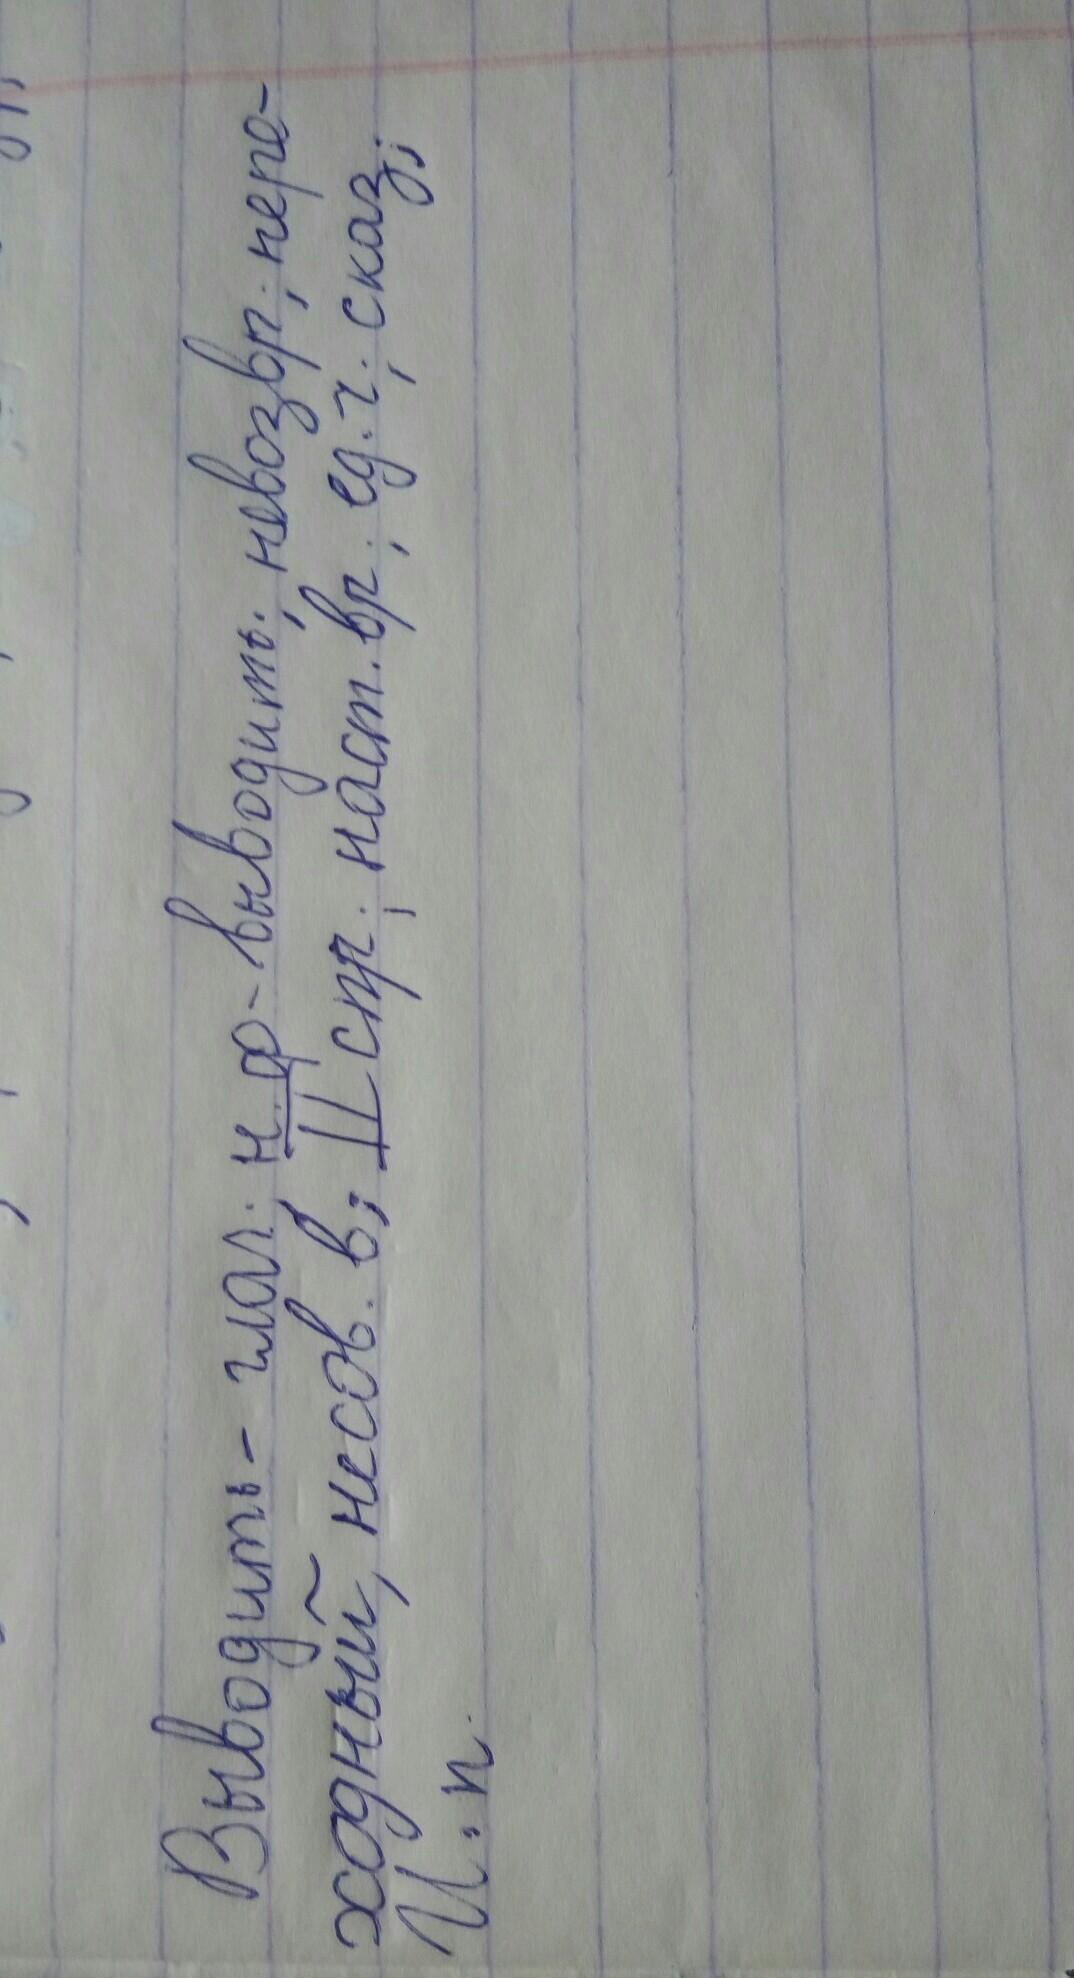 Выводить - глаг. н.ф - выводить; невозвр; пере-
ходный, несов. в; II спр; наст. вр; ед. ч; сказ;
И. п